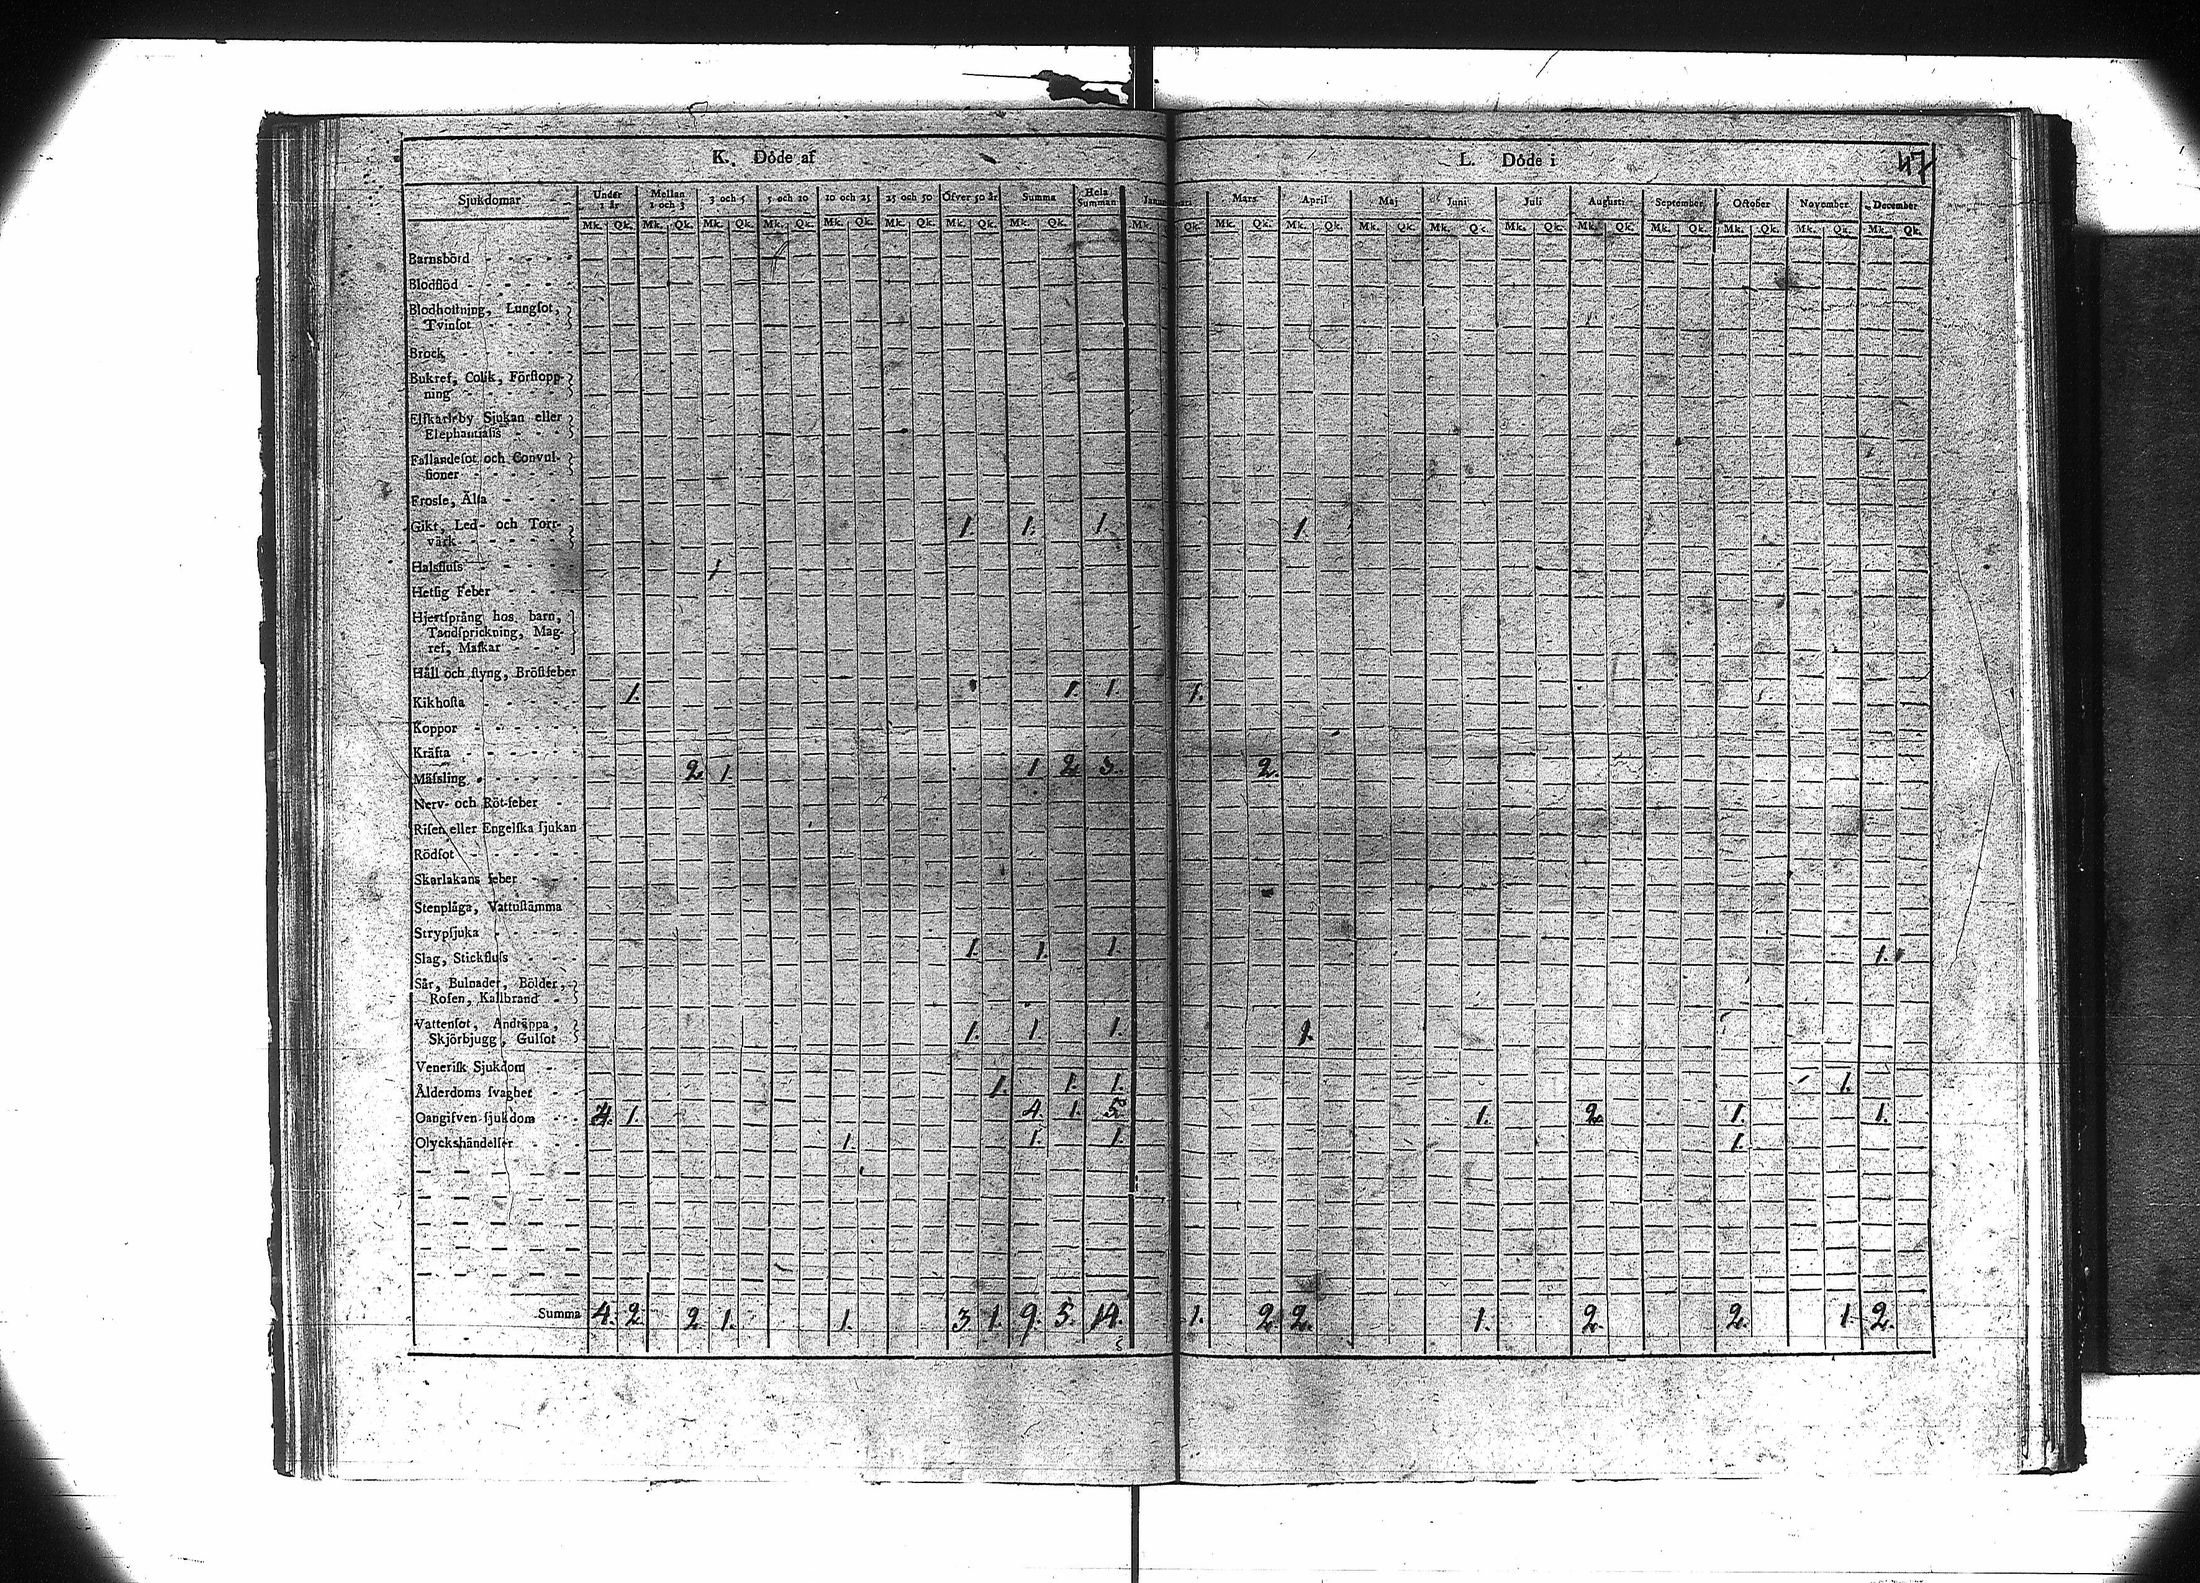 K. Döde af
L. Döde i
47
Sjukdomar Under 1 år Mellan 1 och 3 3 och 5 5 och 10 10 och 25 25 och 50 Öfver 50 år Summa Hela Summan Januari Mars April Maj Juni Juli Augusti September October November December
Mk. Qk. Mk. Qk. Mk. Qk. Mk. Qk. Mk. Qk. Mk. Qk. Mk. Qk. Mk. Qk. Mk. Qk. Mk. Qk. Mk. Qk. Mk. Qk. Mk. Qk. Mk. Qk. Mk. Qk. Mk. Qk. Mk. Qk. Mk. Qk. Mk. Qk.
Barnsbörd
Blodflöd
Blodhoſtning, Lungſot,
Tvinſot
Brock
Bukref, Colik, Förſtopp-
ning
Elfkarleby Sjukan eller
Elephantiaſis
Fallandeſot och Convul-
ſioner
Frosſe, Älta
Gikt, Led- och Torr- 1. 1. 1. 1.
värk
Halsfluſs 1
Hetſig Feber
Hjertſprång hos barn,
Tandſprickning, Mag-
ref, Maſkar
Håll och ſtyng, Bröſtfeber
Kikhoſta 1. 1. 1. 1.
Koppor
Kräfta
Mäſsling 2 1. 1 2 3. 2.
Nerv- och Röt-feber
Riſen eller Engelſka ſjukan
Rödſot
Skarlakans feber
Stenplåga, Vattuſtämma
Strypſjuka
Slag, Stickfluſs 1. 1. 1. 1.
Sår, Bulnader, Bölder,
Roſen, Kallbrand
Vattenſot, Andtäppa, 1. 1. 1. 1.
Skjörbjugg, Gulſot
Veneriſk Sjukdom
Ålderdoms ſvaghet 1. 1. 1. 1.
Oangifven ſjukdom 4. 1. 4. 1. 5. 1. 2 1. 1.
Olyckshändelſer 1. 1. 1. 1.
Summa 4. 2. 2 1. 1. 3. 1. 9. 5. 14. 1. 2 2. 1. 2. 2. 1. 2.